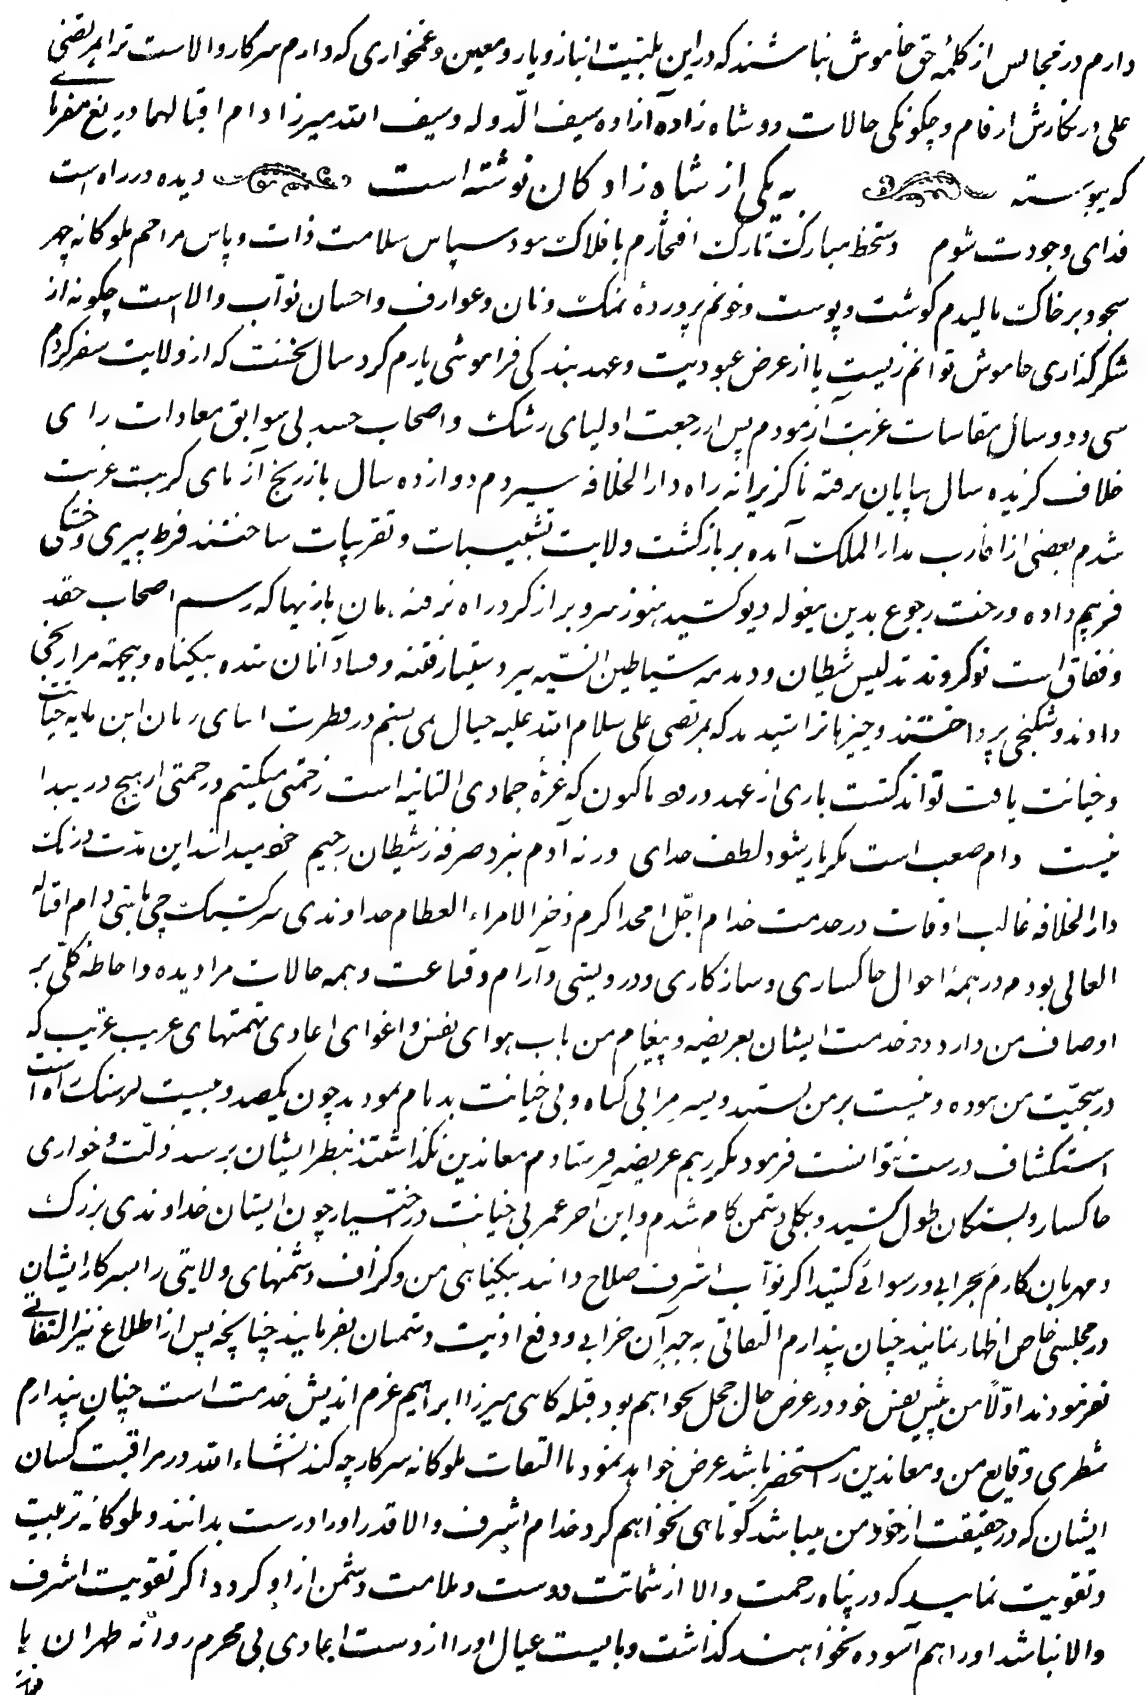 دارم در مجالس از کلمه حق خاموش نباشند که در این بلیت انباز و یار و معین و غمخواری که دارم سرکار والاست ترا بمرتضی
علی در نگارش ارقام و چگونگی حالات دو شاه زاده آزاده سیف الدوله و سیف الله میرزا دام اقبالهما دریغ مفرمای
که پیوسته دیده در راه است
به یکی از شاه زادکان نوشته است
فدای وجودت شوم دستخط مبارکت تارک افتخارم بافلاک سود سپاس سلامت ذات و پاس مراحم ملوکانه چهر
سجود بر خاک مالیدم گوشت و پوست و خونم پرورده نمک و نان و عوارف و احسان نواب والاست چگونه از
شکرگذاری خاموش توانم زیست یا از عرض عبودیت و عهد بندگی فراموشی یارم کرد سال نخست که از ولایت سفر کردم
سی و دو سال مقاسات غربت آزمودم پس از رجعت اولیای رشک و اصحاب حسد بی سوابق معادات رای
خلاف گزیده سال بپایان نرفته ناگزیرانه راه دارالخلافه سپردم دوازده سال باز رنج آزمای کربت غربت
شدم بعضی از اقارب بدارالملک آمده بر بازگشت ولایت تشبیبات و تقریبات ساختند فرط پیری و خستگی
فریبم داده و رخت رجوع بدین بیغوله دیو کشید هنوز سر و بر از گرد راه نرفته همان بازیها که رسم اصحاب حقد
و نفاق است نو کردند تدلیس شیطان و دمدمه شیاطین الانسیه نیز دستیار فتنه و فساد آنان شده بیگناه و بیجهة مرا رنجی
دادند و شکنجی پرداختند و چیزها تراشیدند که بمرتضی علی سلام الله علیه خیال نمی بستم در فطرت ابنای زمان این مایه خباثت
و خیانت یافت تواند گشت باری از عهد ورود تاکنون که غره جمادی الثانیه است زحمتی میکشم و رحمتی از هیچ در پیدا
نیست دام صعب است مگر یار شود لطف خدای ورنه آدم نبرد صرفه ز شیطان رجیم خود میدانند این مدت درنگ
دارالخلافه غالب اوقات در خدمت خدام اجل امجد اکرم فخر الامراء العظام خداوندی سرکشیک چی باشی دام اقباله
العالی بودم و در همه احوال خاکساری و سازگاری و درویشی و آرام و قناعت و همه حالات مرا دیده و احاطه کلی بر
اوصاف من دارد در خدمت ایشان بعریضه و پیغام من باب هوای نفس و اغوای اعادی تهمتهای عریب غریب که
در سجیت من نبوده و نیست بر من بستند و مرا بی گناه و بی خیانت بدنام نمودند چون یکصد و بیست فرسنگ راه است
استکشاف درست نتوانست فرمود مگر هم عریضه فرستادم معاندین نگذاشتند بنظر ایشان برسد ذلت و خواری
خاکسار و بستگان طول کشید و بکلی دشمن کام شدم و این آخر عمر بی خیانت در اختیار چون ایشان خداوندی بزرگ
و مهربان کارم بخرابی و رسوائی کشید اگر نواب اشرف صلاح دانند بیگناهی من و گزاف دشمنهای ولایتی را بسرکار ایشان
در مجلسی خاص اظهار نمایند چنان پندارم التفاتی به جبر آن خرابی و دفع اذیت دشمنان بفرمایند چنانچه پس از اطلاع نیز التفاتی
نفرمودند اولا من پیش نفس خود در عرض حال خجل نخواهم بود قبله گاهی میرزا ابراهیم عزم اندیش خدمت است چنان پندارم
شطری وقایع من و معاندین را مستحضر باشد عرض خواهد نمود تا التفات ملوکانه سرکار چه کند انشاءالله در مراقبت کسان
ایشان که در حقیقت از خود من میباشد کوتاهی نخواهم کرد خدام اشرف والا قدر او را درست بدانند و ملوکانه تربیت
و تقویت نمایند که در پناه رحمت والا از شماتت دوست و ملامت دشمن آزاد گردد اگر تقویت اشرف
والا نباشد او را هم آسوده نخواهند گذاشت و بایست عیال او را از دست اعادی بی محرم روانه طهران یا